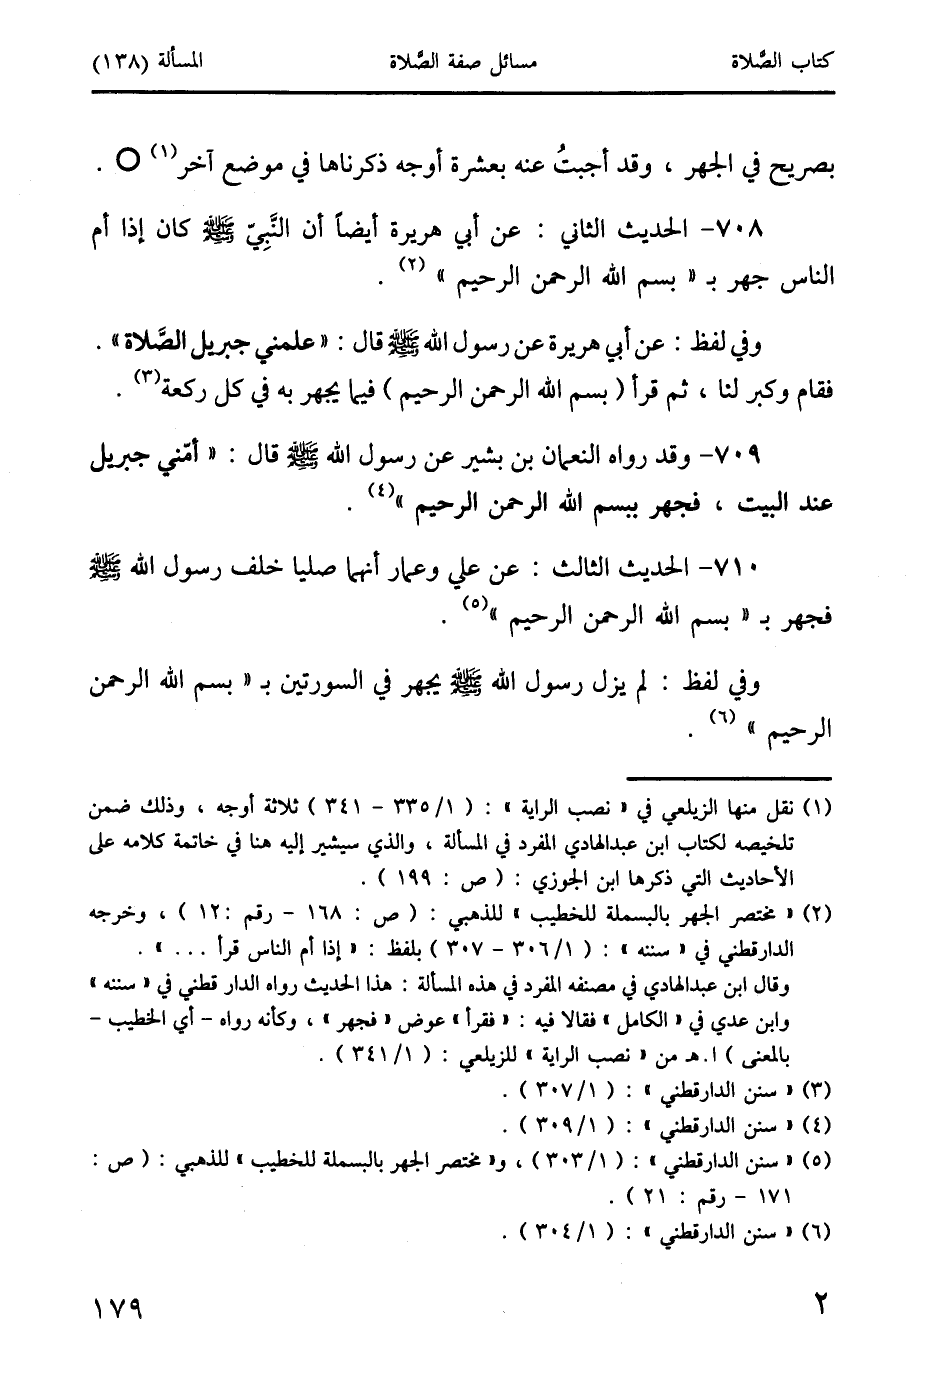 كتاب الصَّلاة مسائل صفة الصَّلاة المسألة (١٣٨)
بصريح في الجهر ، وقد أجبتُ عنه بعشرة أوجه ذكرناها في موضع آخر(١) O .
٧٠٨- الحديث الثاني : عن أبي هريرة أيضاً أن النَّبِيّ ﷺ كان إذا أم
الناس جهر بـ « بسم الله الرحمن الرحيم » (٢) .
وفي لفظ : عن أبي هريرة عن رسول الله ﷺ قال : « علمني جبريل الصَّلاة » .
فقام وكبر لنا ، ثم قرأ ( بسم الله الرحمن الرحيم ) فيما يجهر به في كل ركعة(٣) .
٧٠٩- وقد رواه النعمان بن بشير عن رسول الله ﷺ قال : « أمّني جبريل
عند البيت ، فجهر ببسم الله الرحمن الرحيم »(٤) .
٧١٠- الحديث الثالث : عن علي وعمار أنهما صليا خلف رسول الله ﷺ
فجهر بـ « بسم الله الرحمن الرحيم »(٥) .
وفي لفظ : لم يزل رسول الله ﷺ يجهر في السورتين بـ « بسم الله الرحمن
الرحيم » (٦) .
(١) نقل منها الزيلعي في « نصب الراية » : ( ١/ ٣٣٥ - ٣٤١ ) ثلاثة أوجه ، وذلك ضمن
تلخيصه لكتاب ابن عبدالهادي المفرد في المسألة ، والذي سيشير إليه هنا في خاتمة كلامه على
الأحاديث التي ذكرها ابن الجوزي : ( ص : ١٩٩ ) .
(٢) « مختصر الجهر بالبسملة للخطيب » للذهبي : ( ص : ١٦٨ - رقم :١٢ ) ، وخرجه
الدارقطني في « سننه » : ( ١/ ٣٠٦ - ٣٠٧ ) بلفظ : « إذا أم الناس قرأ ... » .
وقال ابن عبدالهادي في مصنفه المفرد في هذه المسألة : هذا الحديث رواه الدار قطني في « سننه »
وابن عدي في « الكامل » فقالا فيه : « فقرأ » عوض « فجهر » ، وكأنه رواه - أي الخطيب -
بالمعنى ) ا.هـ من « نصب الراية » للزيلعي : ( ١/ ٣٤١ ) .
(٣) « سنن الدارقطني » : ( ١/ ٣٠٧ ) .
(٤) « سنن الدارقطني » : ( ١/ ٣٠٩ ) .
(٥) « سنن الدارقطني » : ( ١/ ٣٠٣ ) ، و« مختصر الجهر بالبسملة للخطيب » للذهبي : ( ص :
١٧١ - رقم : ٢١ ) .
(٦) « سنن الدارقطني » : ( ١/ ٣٠٤ ) .
٢ ١٧٩